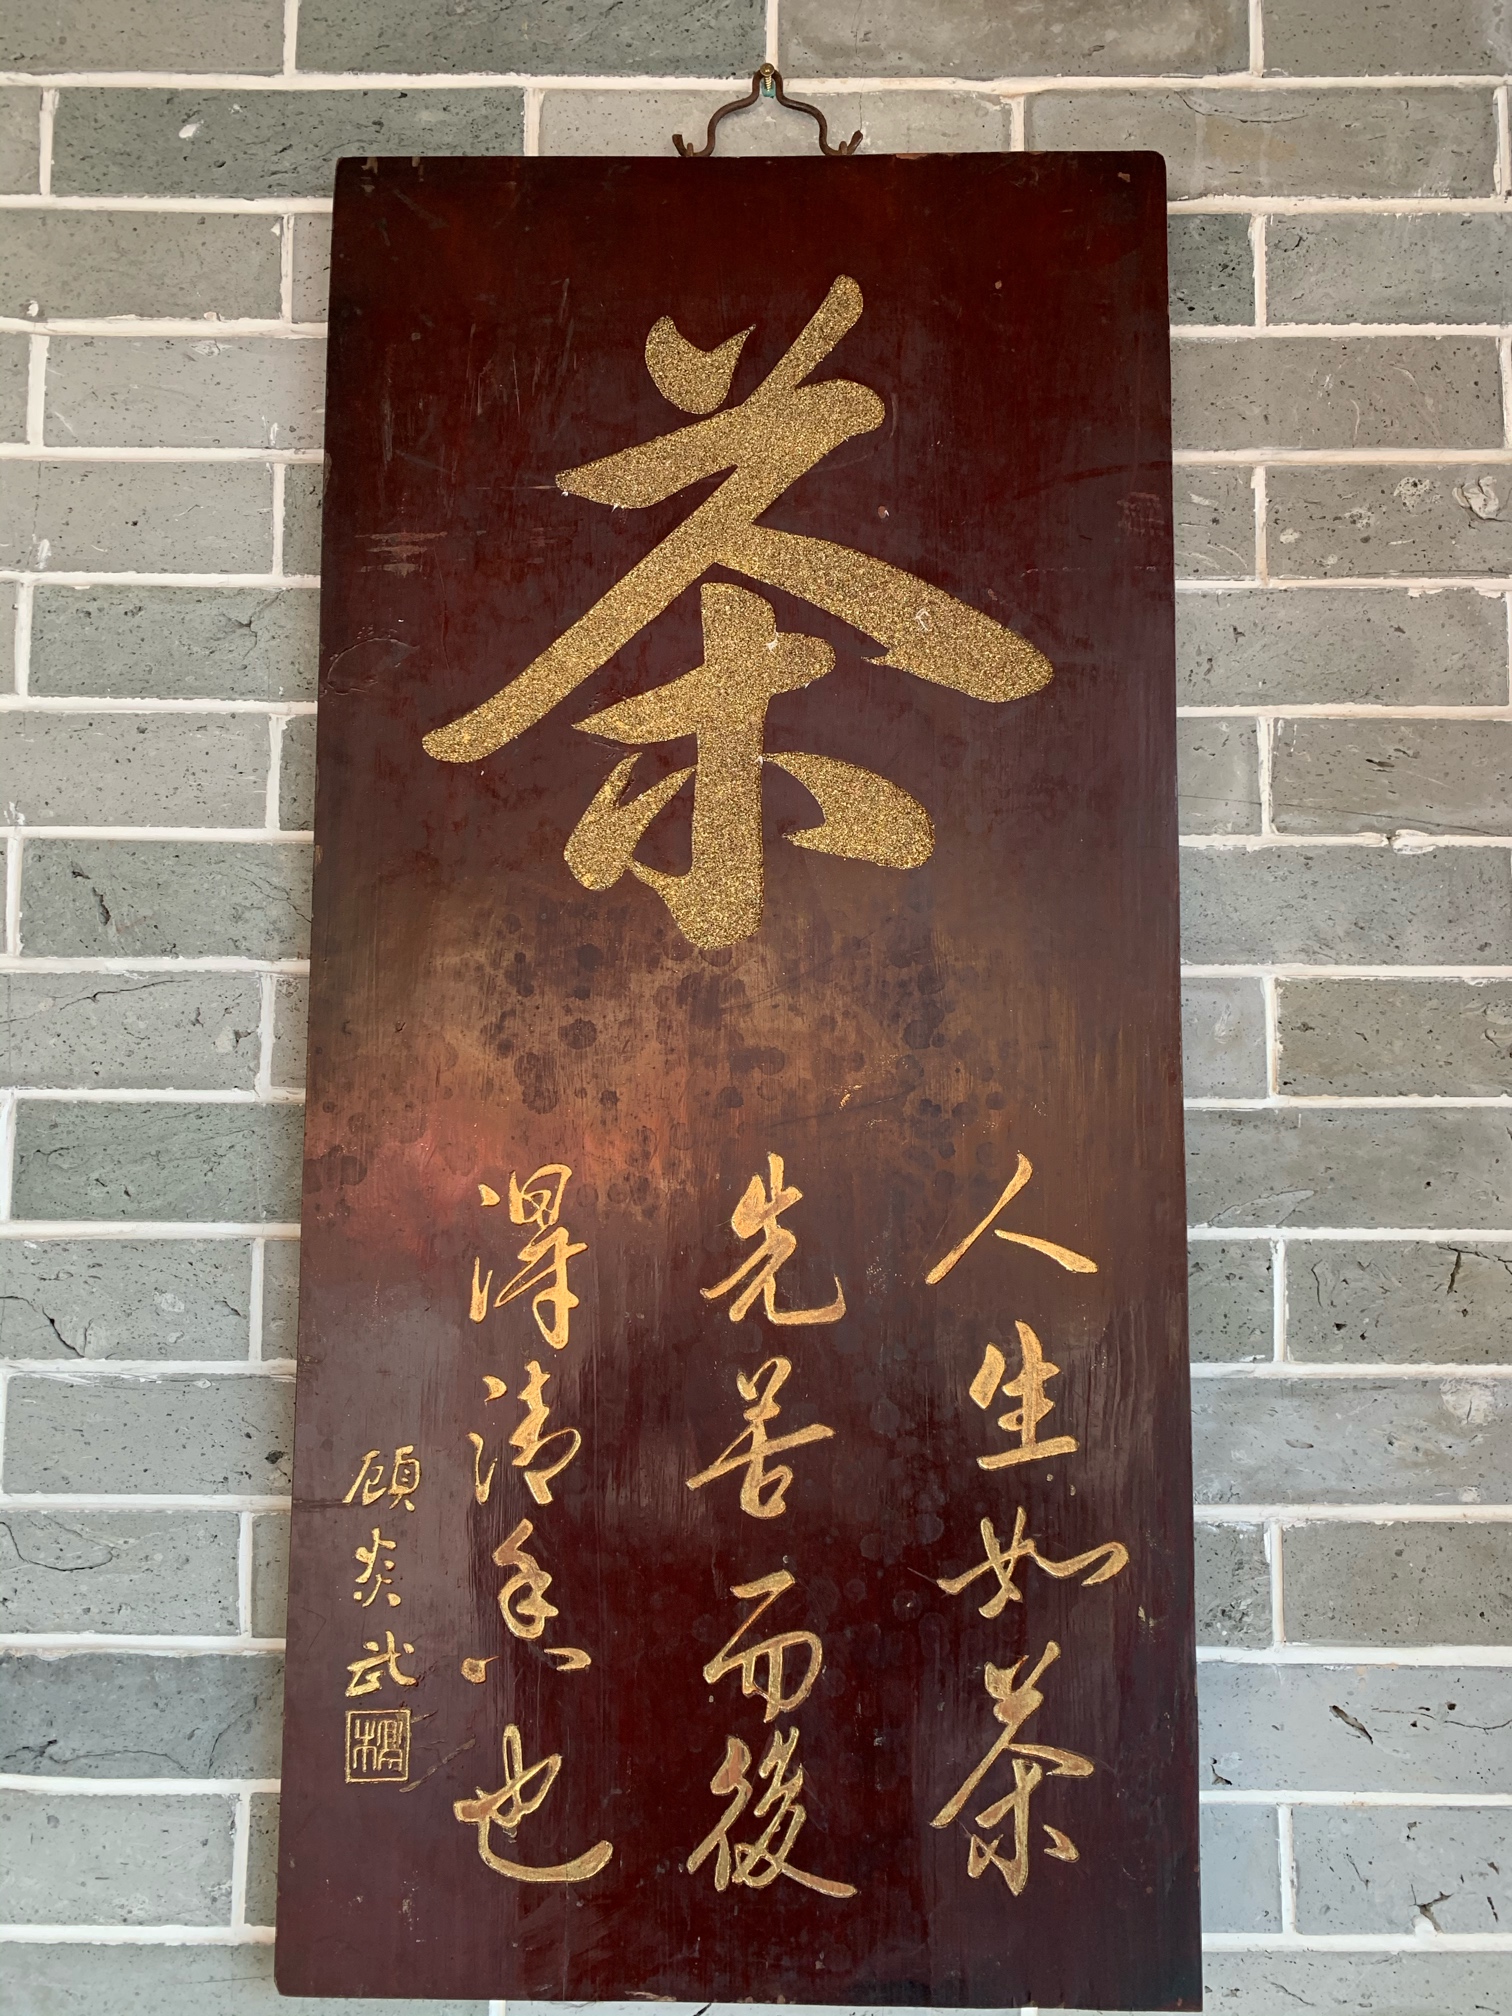 茶
人生如茶
先苦而後
得清香也
顾炎武